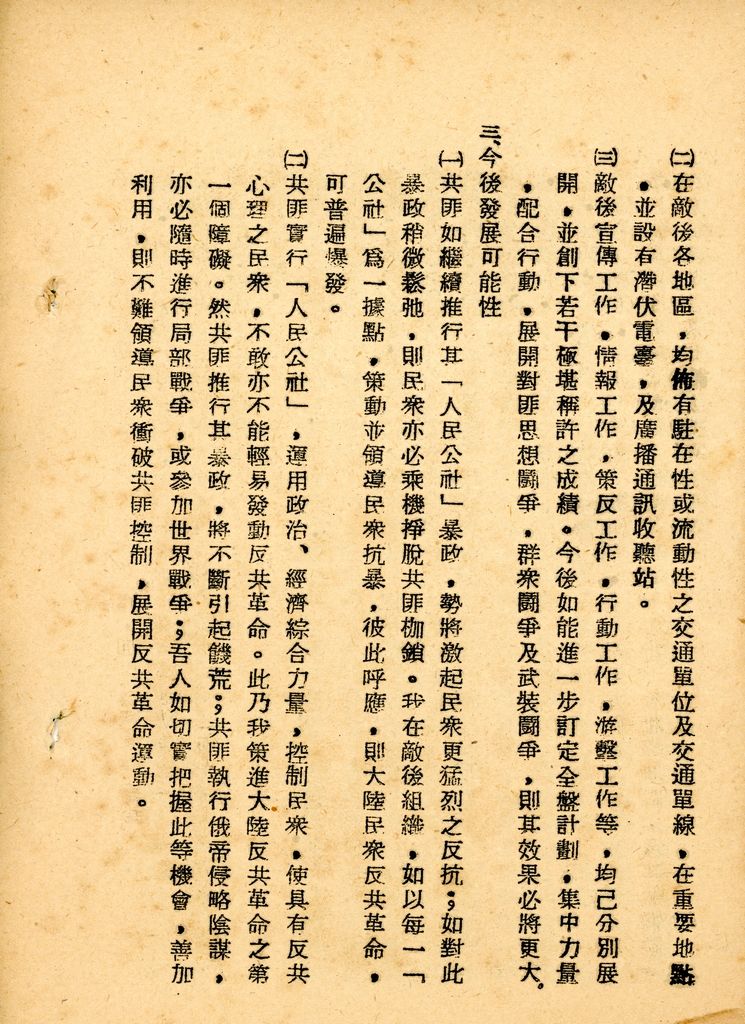 ㈡在敵後各地區，均佈有駐在性或流動性之交通單位及交通單線，在重要地點
，並設有潛伏電臺，及廣播通訊收聽站。
㈢敵後宣傳工作，情報工作，策反工作，行動工作，游擊工作等，均已分別展
開，並創下若干極堪稱許之成績。今後如能進一步訂定全盤計劃，集中力量
，配合行動，展開對匪思想鬪爭，群衆鬪爭及武裝鬪爭，則其效果必將更大。
三、今後發展可能性
㈠共匪如繼續推行其「人民公社」暴政，勢將激起民衆更猛烈之反抗；如對此
暴政稍微鬆弛，則民衆亦必乘機掙脫共匪枷鎖。我在敵後組織，如以每一「
公社」爲一據點，策動並領導民衆抗暴，彼此呼應，則大陸民衆反共革命，
可普遍爆發。
㈡共匪實行「人民公社」，運用政治、經濟綜合力量，控制民衆，使具有反共
心理之民衆，不敢亦不能輕易發動反共革命。此乃我策進大陸反共革命之第
一個障礙。然共匪推行其暴政，將不斷引起饑荒；共匪執行俄帝侵略陰謀，
亦必隨時進行局部戰爭，或參加世界戰爭；吾人如切實把握此等機會，善加
利用，則不難領導民衆衝破共匪控制，展開反共革命運動。